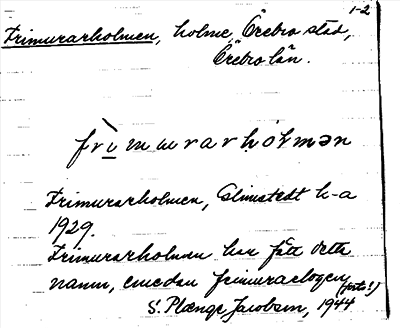 1-2
Frimurarholmen, holme, Örebro stad,
Örebro län.
frìmurarhólmən
Frimurarholmen, Elmstedt k-a
1929.
Frimurarholmen har fått detta
namn, emedan frimurarlogen
S. Plænge Jacobson, 1944